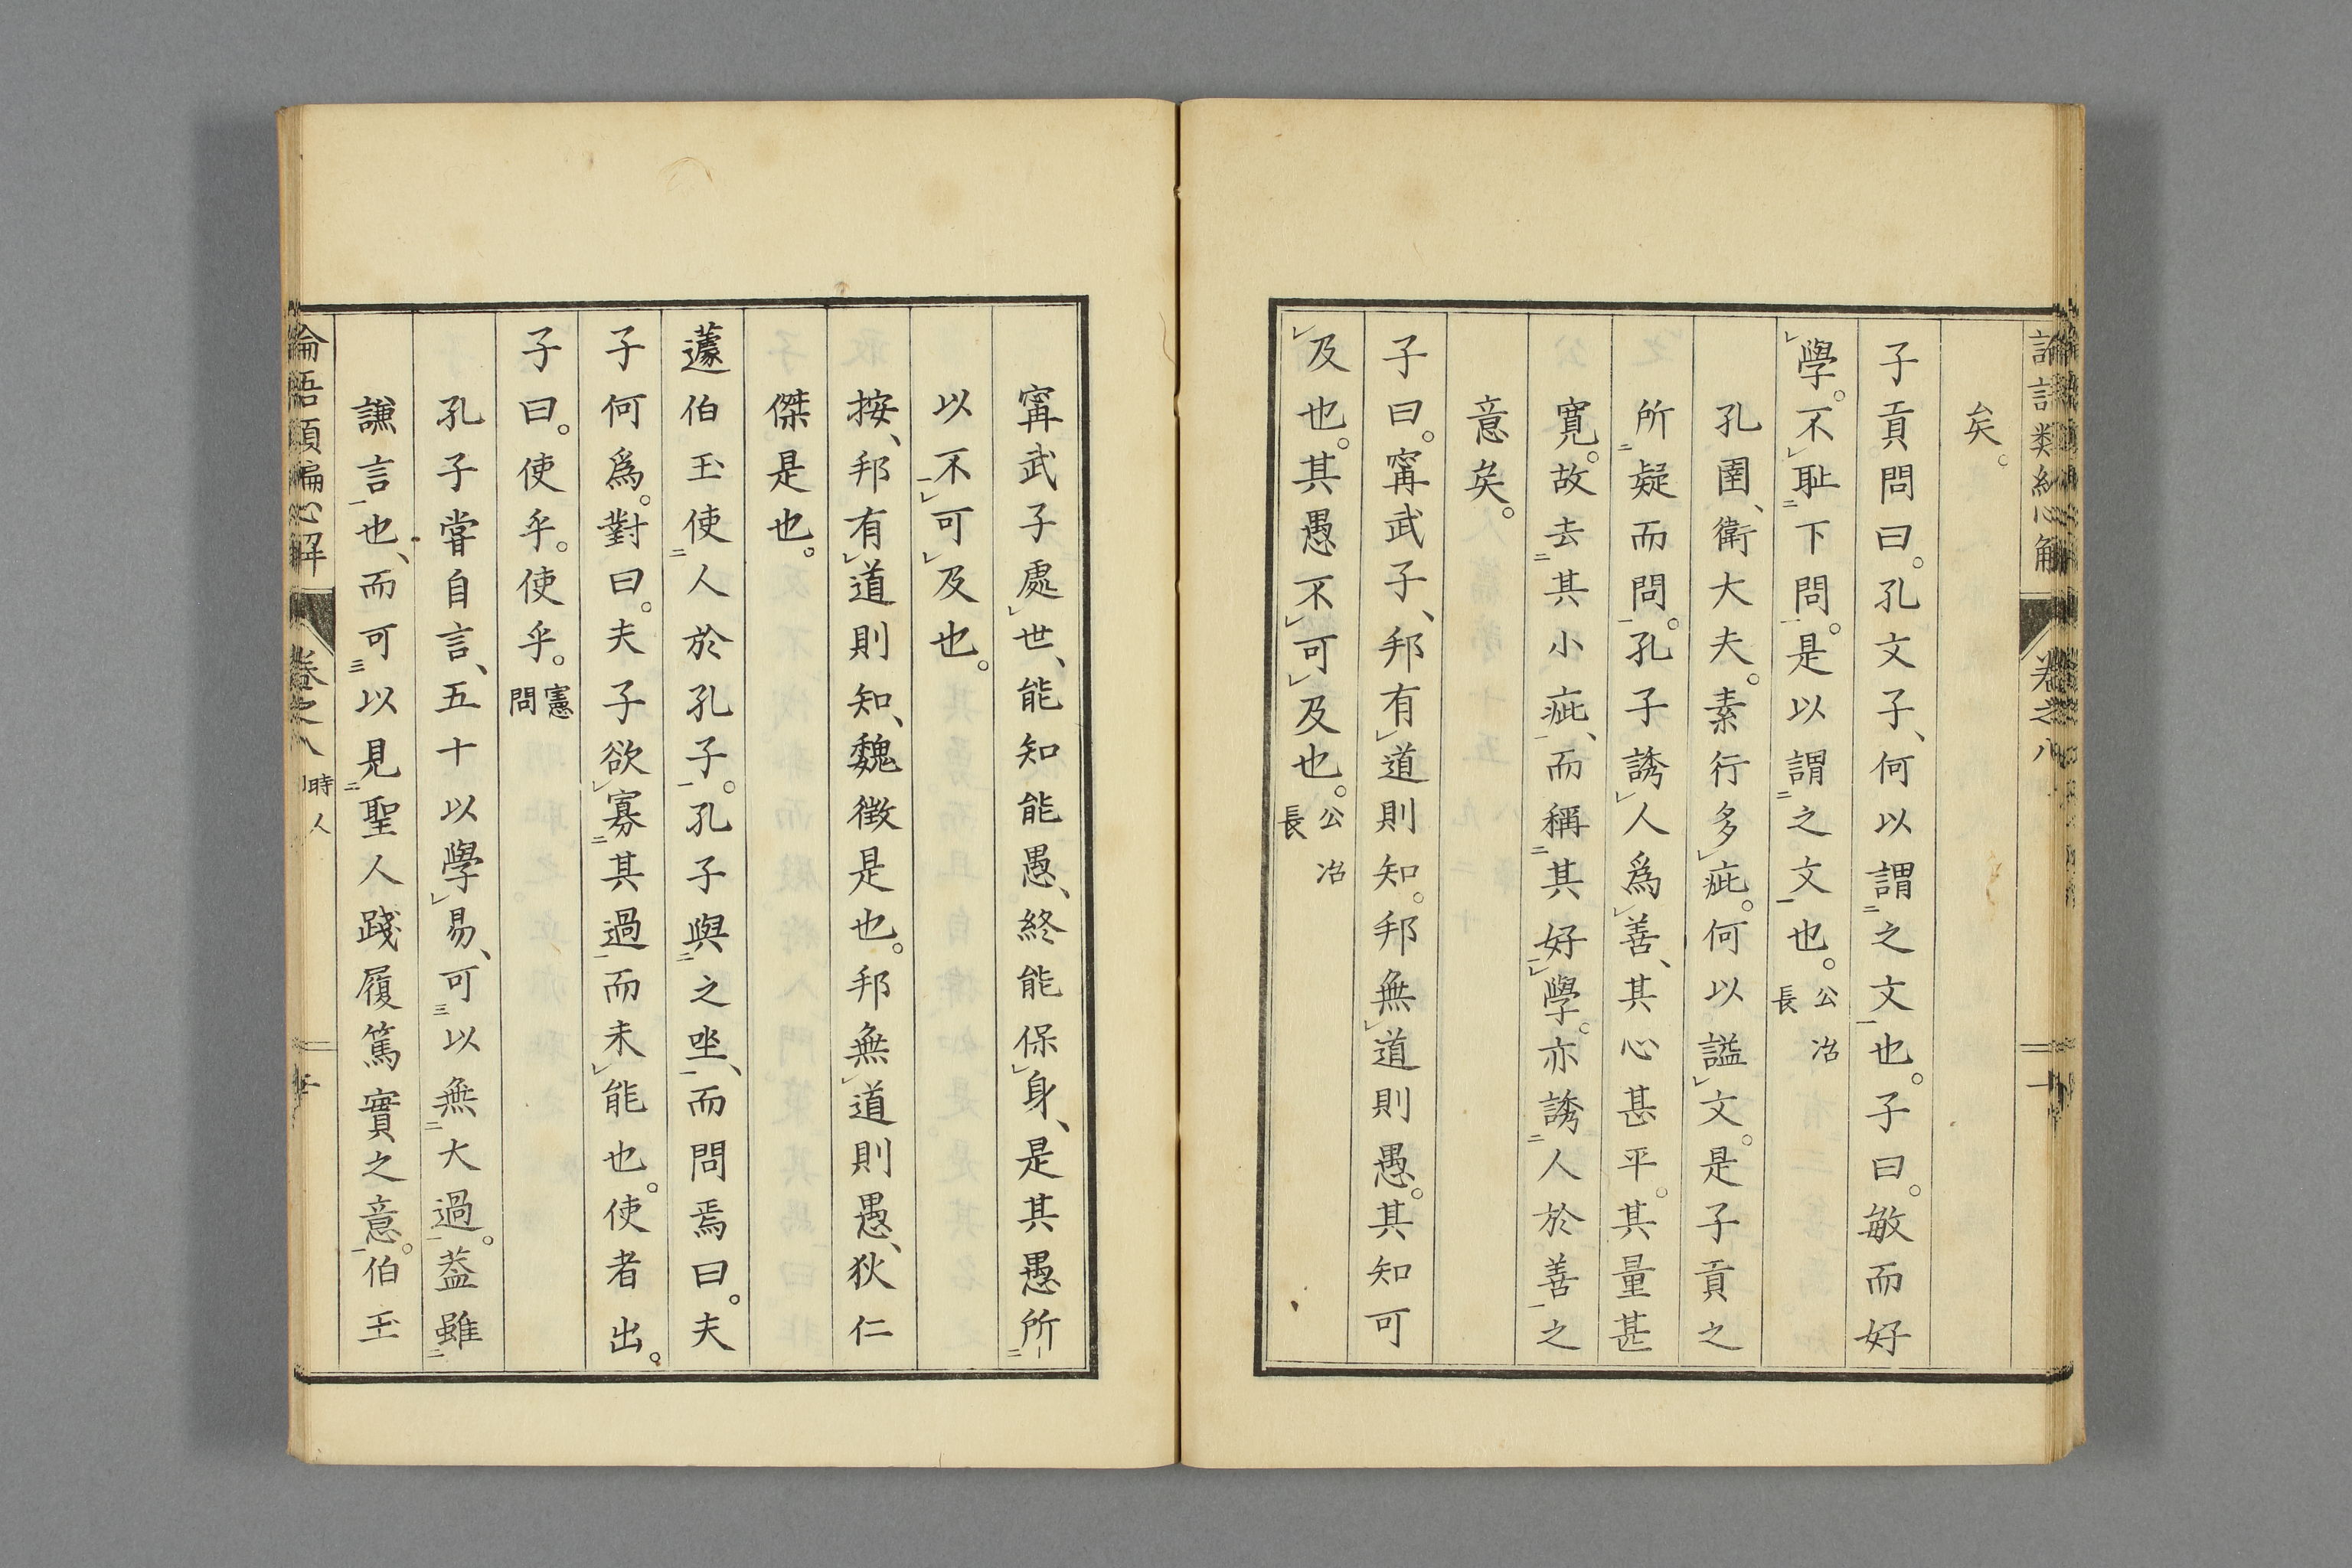 矣。
子貢問曰。孔文子、何以謂之文也。子曰。敏而好
學。不恥下問。是以謂之文也。公冶長
孔圉、衛大夫。素行多疵。何以謚文。是子貢之
所疑而問。孔子誘人爲善、其心甚平。其量甚
寬。故去其小疵、而稱其好學。亦誘人於善之
意矣。
子曰。甯武子、邦有道則知。邦無道則愚。其知可
及也。其愚不可及也。公冶長
甯武子處世、能知能愚、終能保身、是其愚所
以不可及也。
按、邦有道則知、魏徵是也。邦無道則愚、狄仁
傑是也。
蘧伯玉使人於孔子。孔子與之坐、而問焉曰。夫
子何爲。對曰。夫子欲寡其過而未能也。使者出。
子曰。使乎。使乎。憲問
孔子嘗自言、五十以學易、可以無大過。蓋雖
謙言也、而可以見聖人踐履篤實之意。伯玉
論語類編心解 卷之八 時人